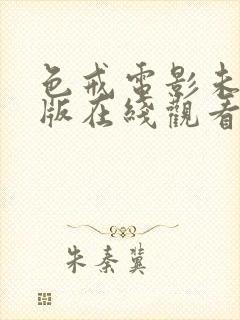 色戒電影未
版在綫觀看
朱秦冀